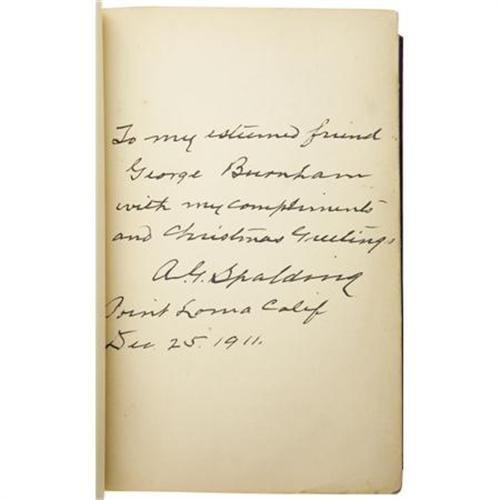 To my esteemed friend
George Burnham
with my compliments
and Christmas Greetings
A.G. Spalding
Point Loma Calif
Dec. 25. 1911.